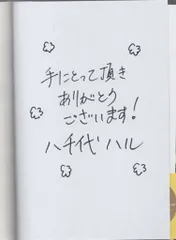 手にとって頂き
ありがとう
ございます!
八千代ハル